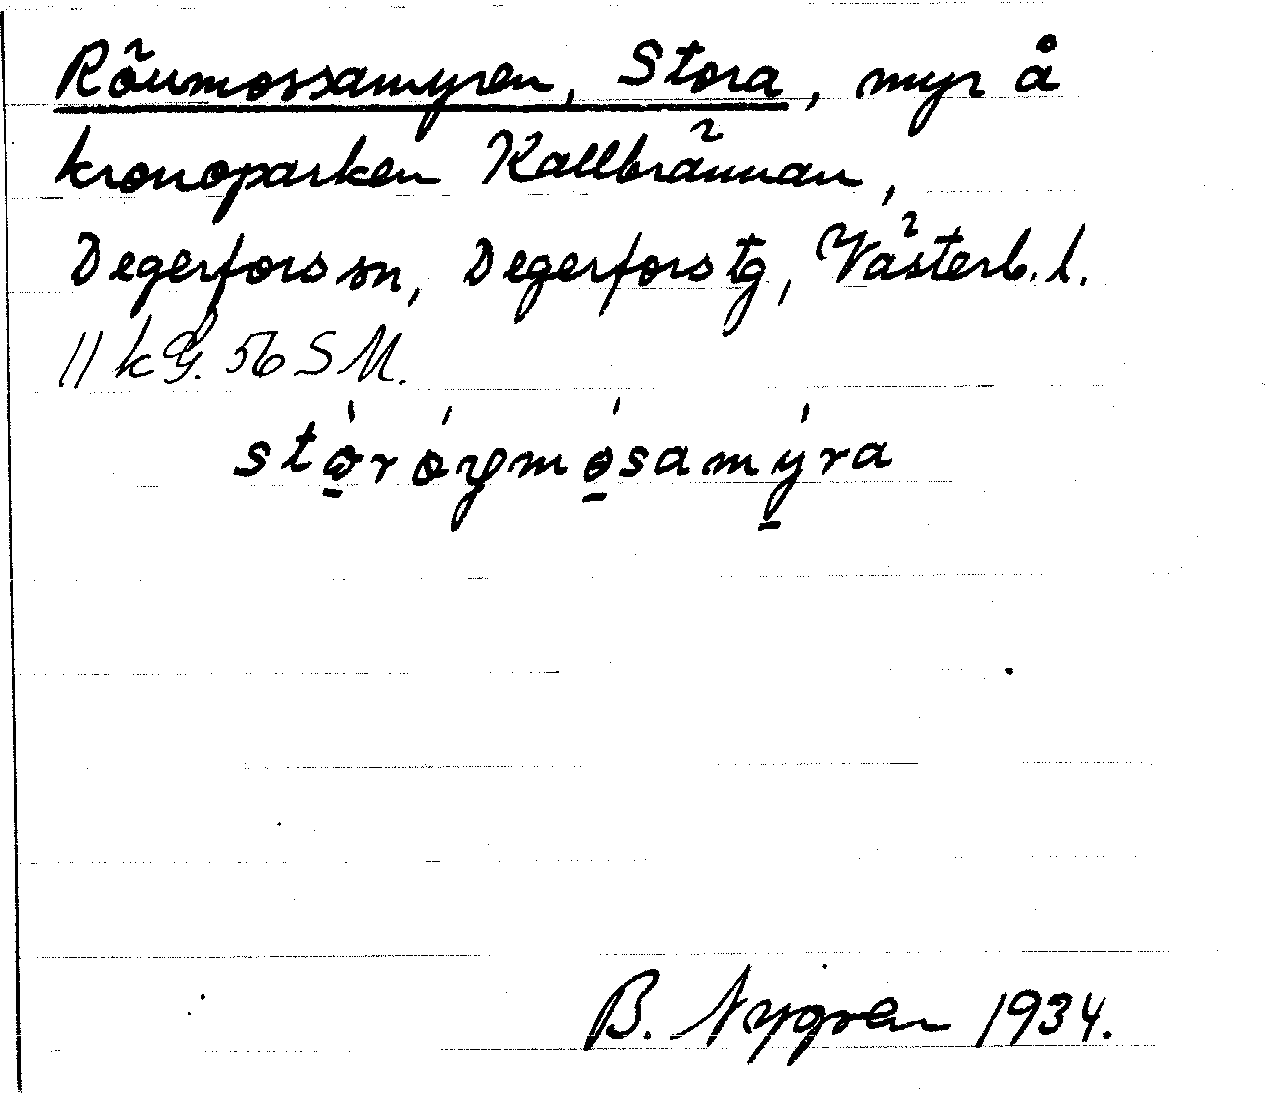 Röumossamyren, Stora, myr å
kronoparken Kallbrännan,
Degerfors sn, Degerfors tg, Västerb. l.
11 k G. 56 S M.
B. Nygren 1934.